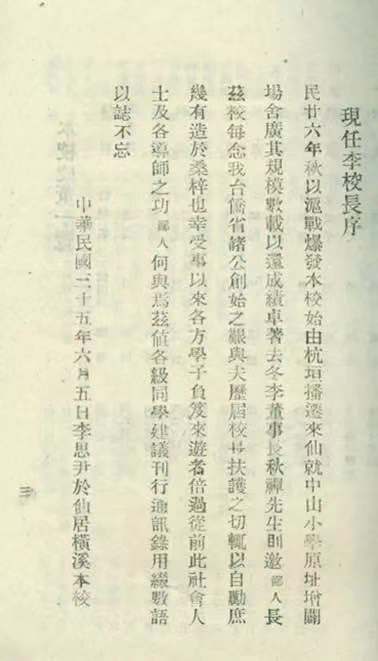 現任李校長序
民廿六年秋以滬戰爆發本校始由杭垣播遷來仙就中山小學原址增闢
場舍廣其規模數載以還成績卓著去冬李董事長秋禪先生則邀鄙人長
茲校每念我台僑省諸公創始之艱與夫歷屆校長扶護之切輒以自勵庶
幾有造於桑梓也幸受事以來各方學子負笈來遊者倍過從前此社會人
士及各導師之功鄙人何與焉茲值各級同學建議刊行通訊錄用綴數語
以誌不忘
中華民國三十五年六月五日李思尹於仙居橫溪本校
三